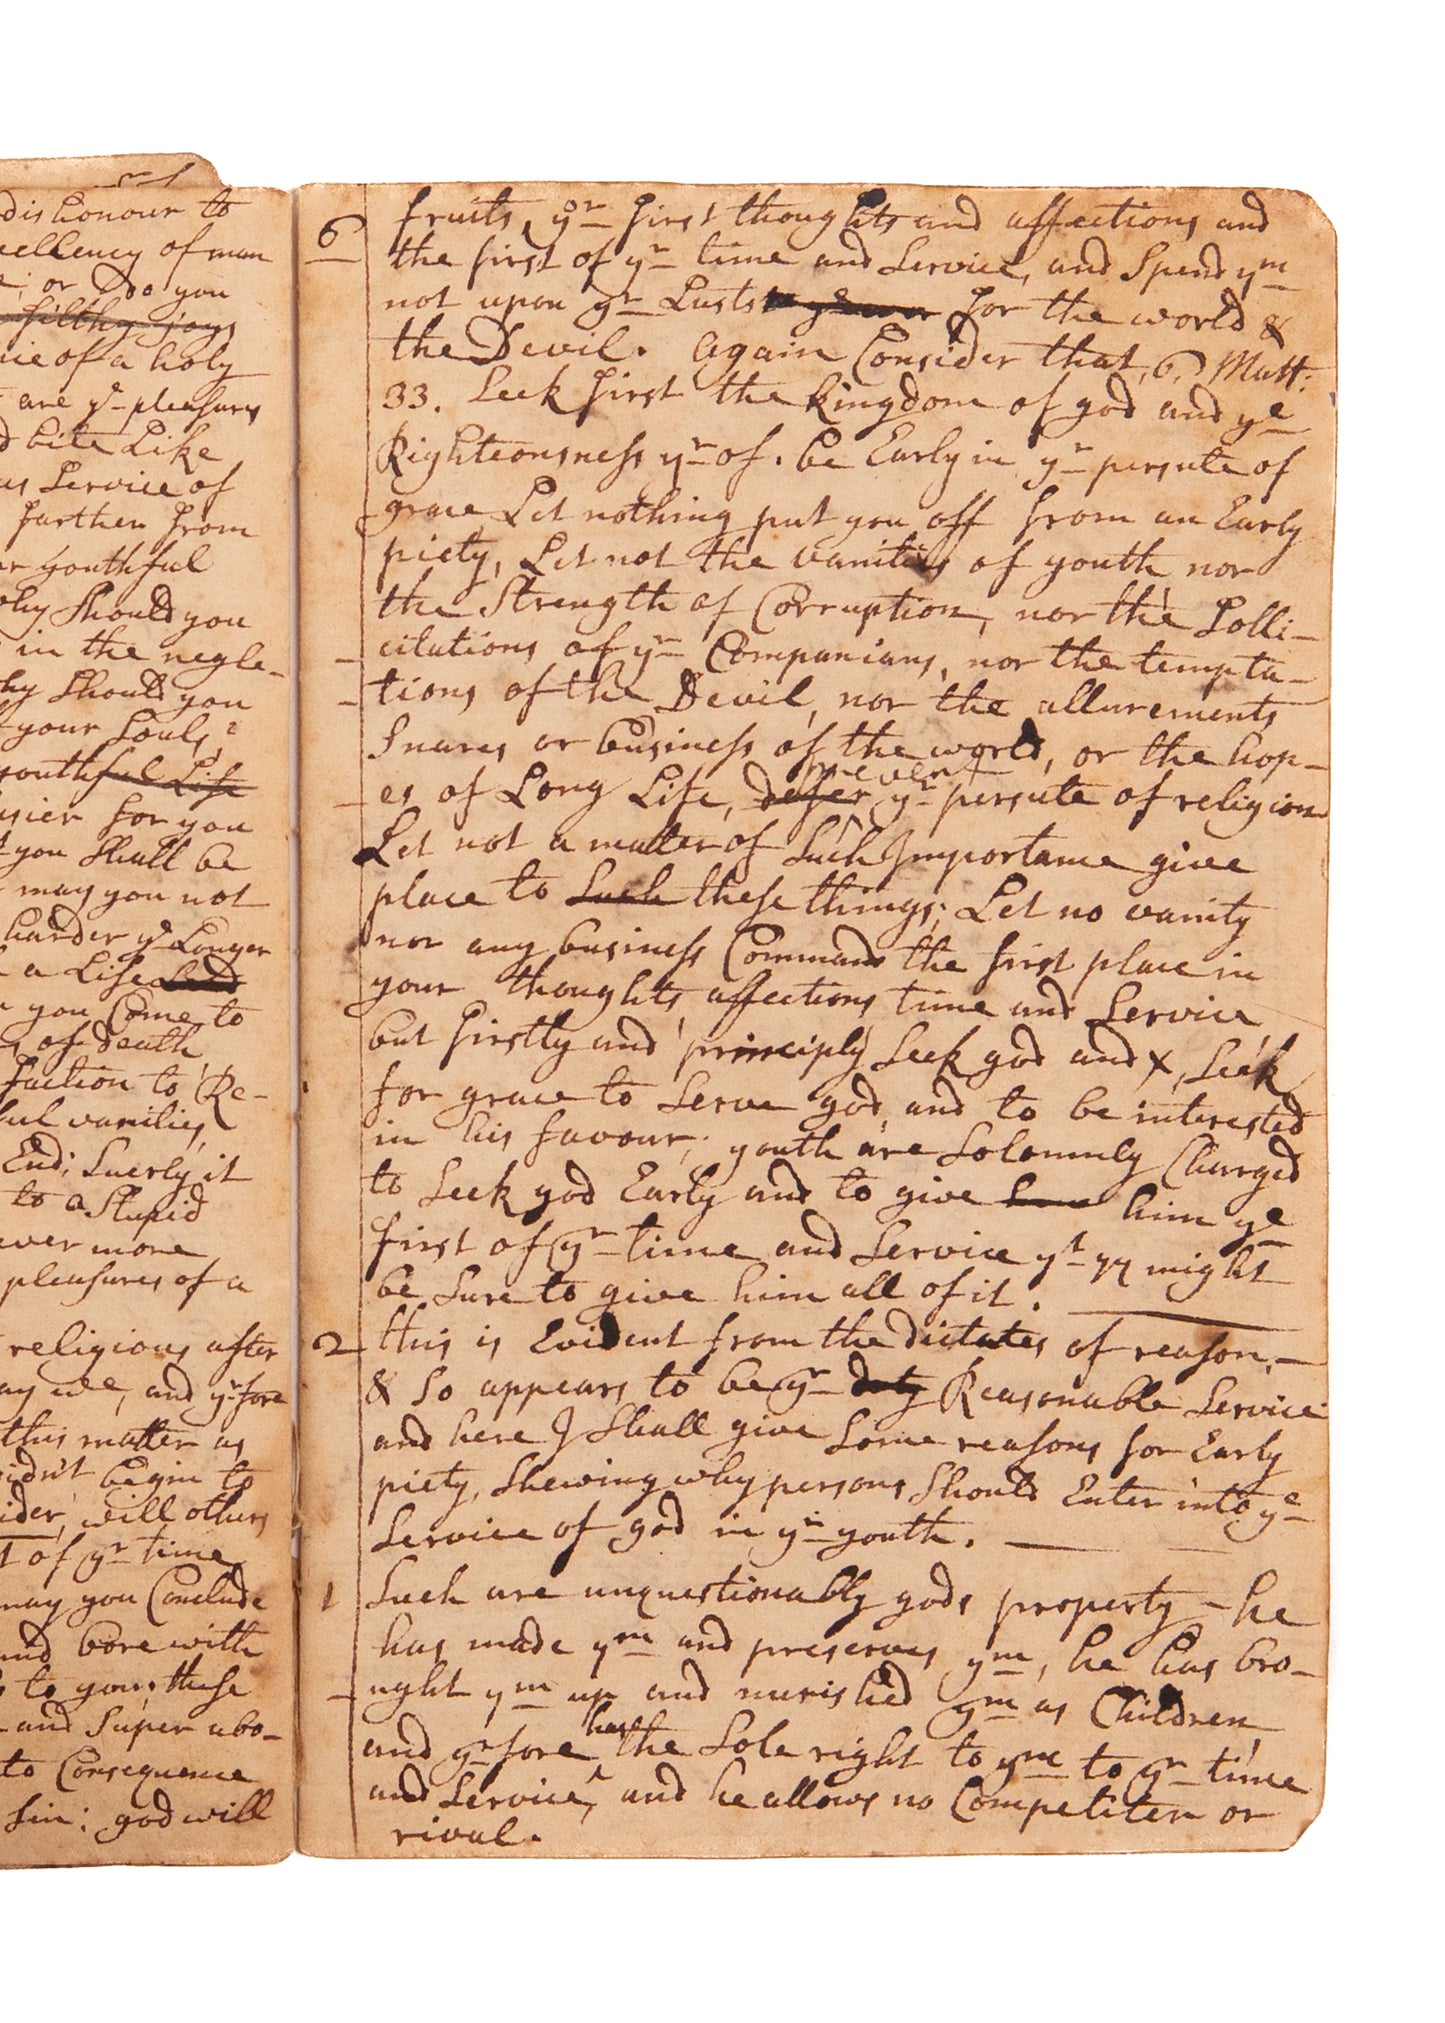 dishonour to
cellency of man
or Do you
filthy joys
of a holy
are ye pleasures
bite Like
Service of
farther from
youthful
why Should you
in the negle-
why Should you
your Souls?
youthful Life
easier for you
you Shall be
may you not
harder ye Longer
a Life
you Come to
of death
faction to Re-
ful vanities,
End; Suerly it
to a Stupid
ever more
pleasures of a
religious after
and yrfore
this matter as
didn't begin to
will others
of yr time
may you Conclude
and bore with
to you; these
and Super abo-
to Consequence
Sin: god will
6
fruits, yr first thoughts and affections and
the first of yr time and Service, and Spend ym
not upon yr Lusts for the world &
the Devil. Again Consider that, 6. Matt:
33. Seek first the kingdom of god and ye
Righteousness yr of. be Early in yr persute of
grace Let nothing put you off from an Early
piety, Let not the vanities of youth nor
the Strength of Corruption, nor the Solli-
citations of yr Companians, nor the tempta-
tions of the Devil, nor the allurements
Snares or business of the world, or the hop-
prevent
es of Long Life, defer yr persute of religion
Let not a matter of Such Importance give
place to Such these things; Let no vanity
nor any business Command the first place in
your thoughts, affections time and Service
but firstly and principly Seek god and X, Seek
for grace to Serve god, and to be interested
in his favour; youth are Solomnly Charged
to Seek god Early and to give him ye
first of yr time and Service yt yy might
be Sure to give him all of it.
2 this is Evident from the dictates of reason,
& So appears to be yr duty Reasonable Service
and here I Shall give Some reasons for Early
piety, Shewing why persons Should Enter into ye
Service of god in yr youth.
1 Such are unquestionably gods property - he
has made ym and preserves ym, he has bro-
ught ym up and nurished ym as Children
has
and yrfore the Sole right to ym to yr time
and Service, and he allows no Competiter or
rival.